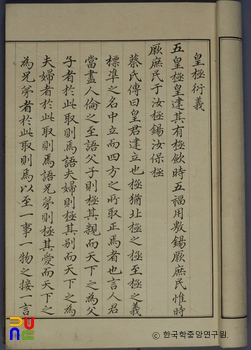 皇極衍義
五皇極皇建其有極歛時五福用敷錫厥庶民惟時
厥庶民于汝極錫汝保極
蔡氏傳曰皇君建立也極猶北極之極至極之義
標準之名中立而四方之所取正焉者也言人君
當盡人倫之至語父子則極其親而天下之為父
子者於此取則焉語夫婦則極其别而天下之為
夫婦者於此取則焉語兄弟則極其愛而天下之
為兄弟者於此取則焉以至一事一物之接一言
ⓒ 한국학중앙연구원